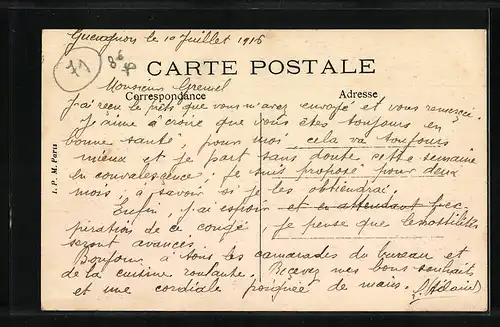 Gueugnon le 10 Juillet 1916
71
CARTE POSTALE
Monsieur
Correspondance
Adresse
J'ai reçu le prêt que vous m'avez envoyé et vous remercie.
J'aime à croire que vous êtes toujours en
bonne santé, pour moi cela va toujours
mieux et je part sans doute cette semaine
en convalescence, je suis proposé pour deux
mois, à savoir si je les obtiendrai.
Enfin j'ai espoir et en attendant
de ce congé, je pense que les hostilités
seront avancés.
Bonjour à tous les camarades du bureau et
de la cuisine roulante. Recevez mes bons souhaits
et une cordiale poignée de mains.
I. P. M. Paris